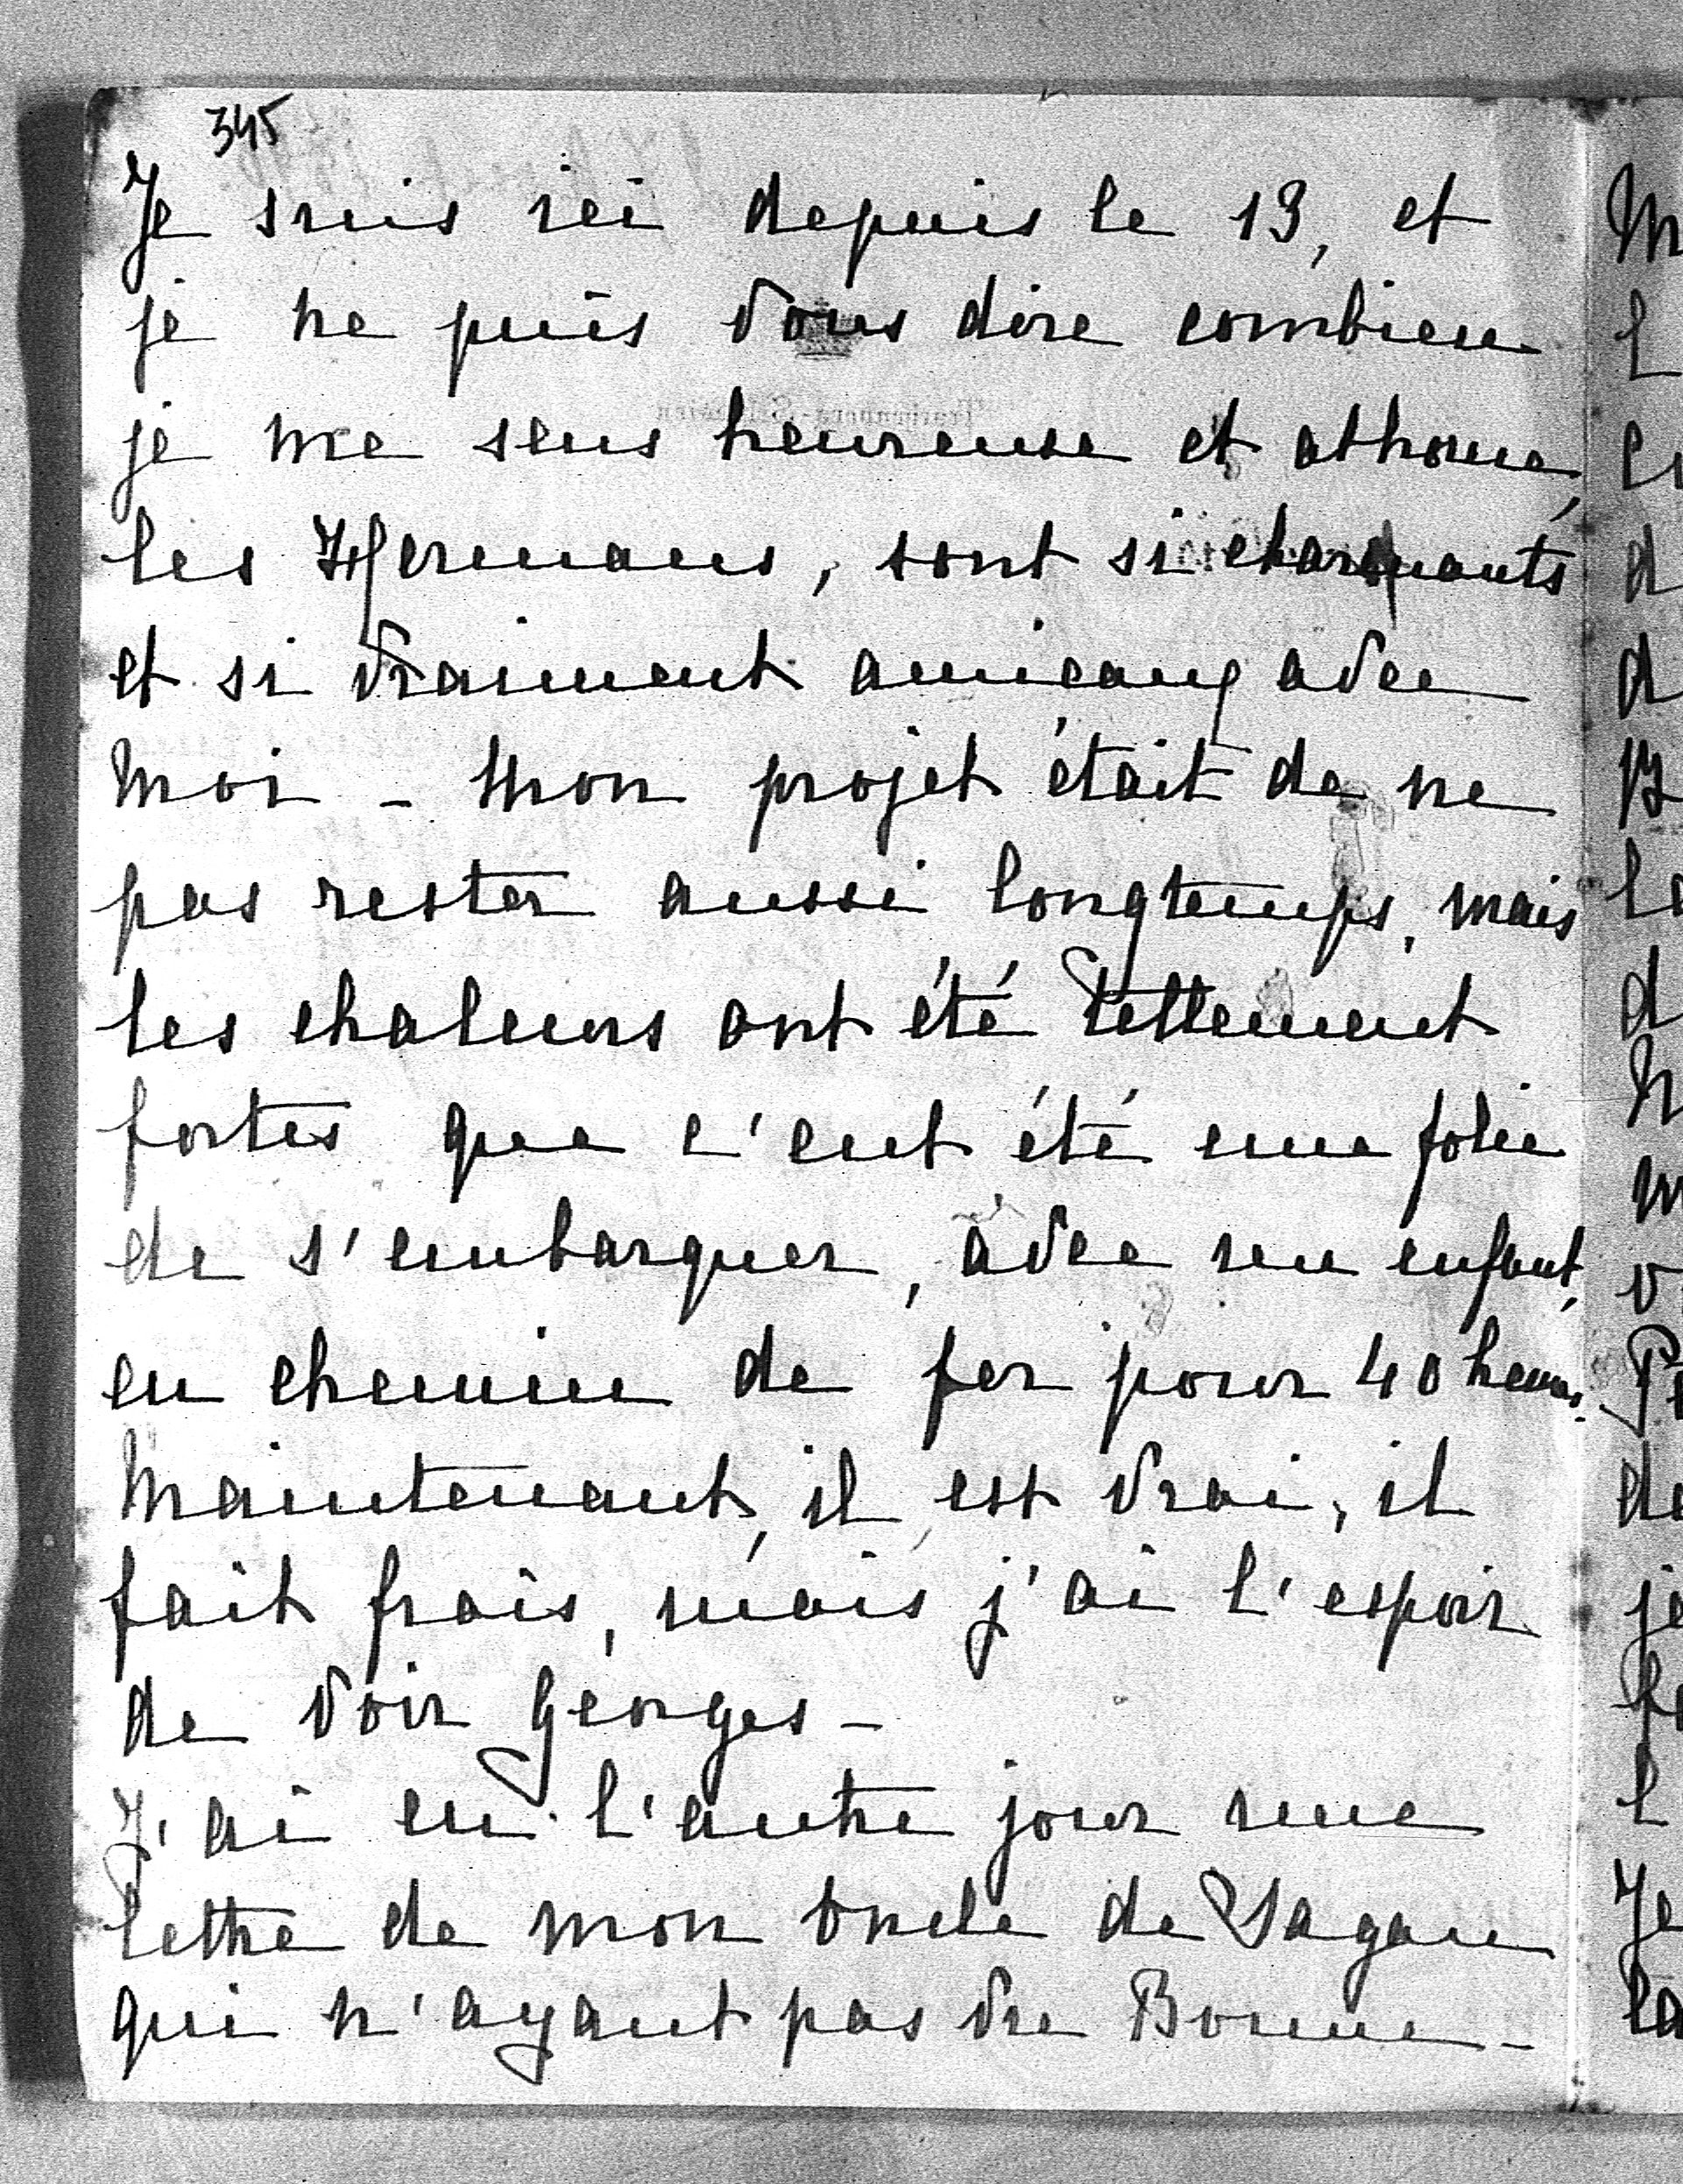 345
Je suis ici depuis le 19, et
je ne puis vous dire combien
je me sens heureuse et athome,
les Hermans, sont si charmants
et si vraiment amicaux avec
moi - Mon projet était de ne
pas rester aussi longtemps, mais
les chaleurs ont été tellement
fortes que c'eut été une folie
de s'embarquer, avec un enfant,
en chemin de fer pour 40 heures.
Maintenant, il est vrai, il
fait frais, mais j'ai l'espoir
de voir Georges -
J'ai eu l'autre jour une
lettre de mon oncle de Sagan
qui n'ayant pas vu Bonne-